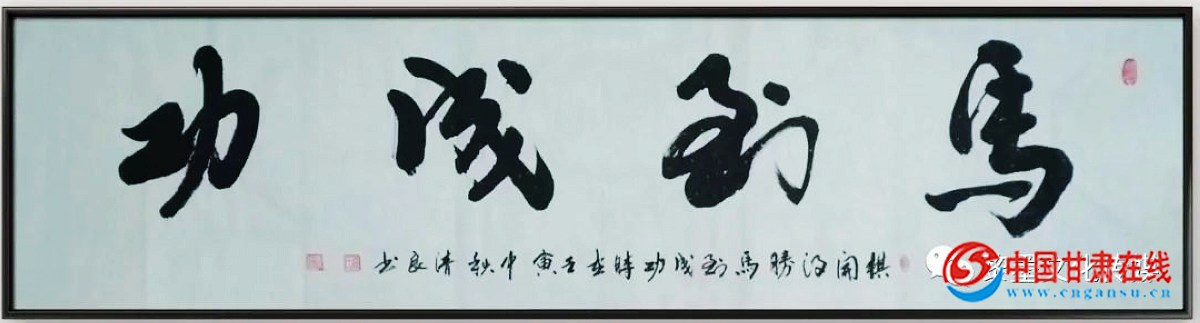 馬到成功
棋開得勝馬到成功時在壬寅中秋清良书
中国甘肃在线
www.cngansu.cn